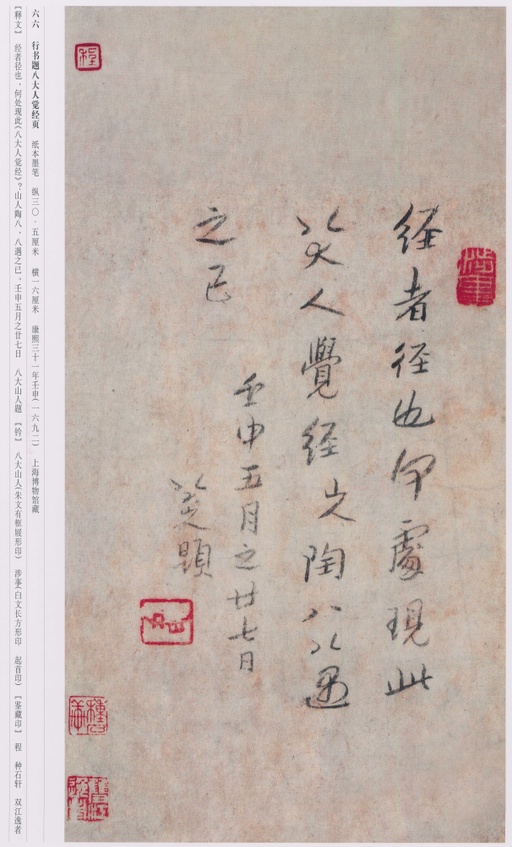 涉事
經者徑也何處現此
八大人覺經山人陶八八遇
之已
壬申五月之廿七日
八大山人題
八大山人
程
六六 行书题八大人觉经页 纸本墨笔 纵三〇·五厘米 横一六厘米 康熙三十一年壬申(一六九二) 上海博物馆藏
【释文】 经者径也,何处现此《八大人觉经》?山人陶八,八遇之已。壬申五月之廿七日 八大山人题 【钤】 八大山人(朱文有框屐形印) 涉事(白文长方形印 起首印) 【鉴藏印】 程 种石轩 双江逸者